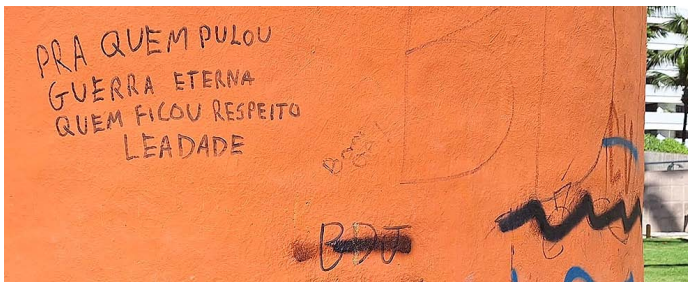 PRA QUEM PULOU
GUERRA ETERNA
QUEM FICOU RESPEITO
LEADADE
BDJ